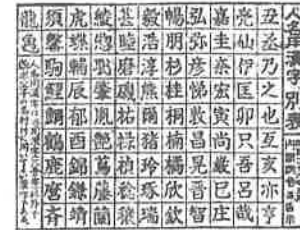 人名用漢字別表
丑丞乃之也亙亥亦亨
亮仙伊匡卯只吾呂哉
嘉圭奈宏寅尚巌巳庄
弘弥彦悌敦昌晃晋智
暢朋杉桂桐楠橘欣欽
毅浩淳熊爾猪玲琢瑞
甚睦磨磯祐禄禎稔穣
綾惣聡肇胤艶蔦藤蘭
虎蝶輔辰郁酉錦鎌靖
須馨駒鯉鯛鶴鹿麿斉
龍亀